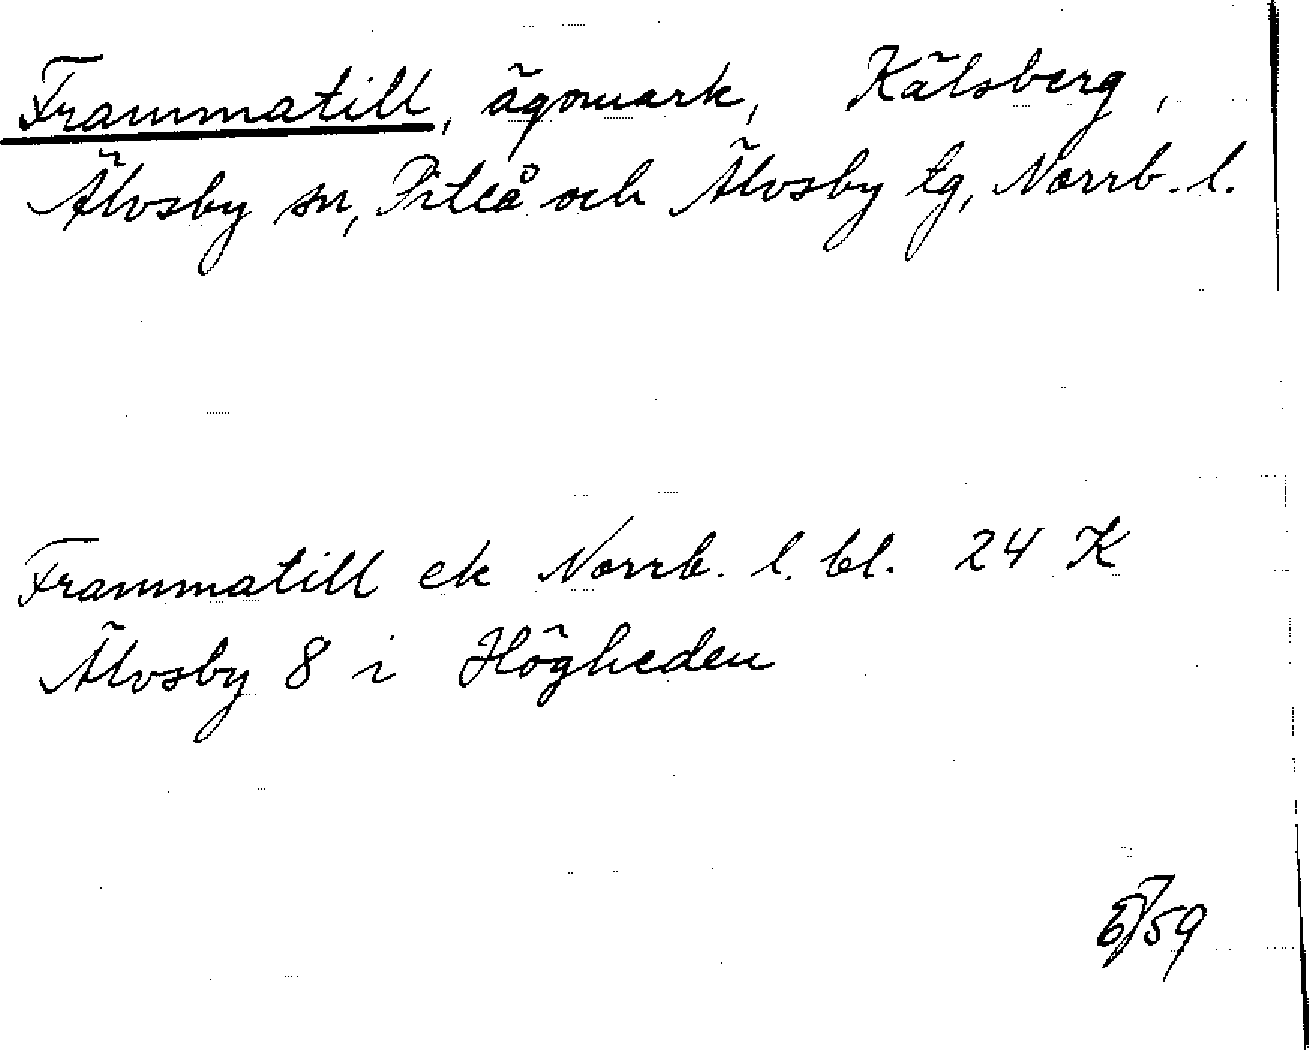 Frammatill, ägomark, Kälsberg,
Älvsby sn, Piteå och Älvsby tg, Norrb. l.
Frammatill ek Norrb. l. bl. 24 K
Älvsby 8 i Högheden
/59